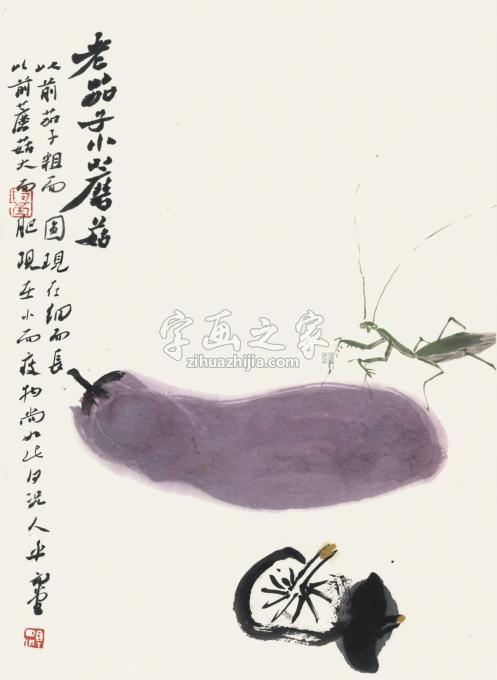 老茄子小蘑菇
此前茄子粗而圆现在细而长
以前蘑菇大而肥现在小而瘦物尚如此何况人乎
字画之家
zihuazhijia.com